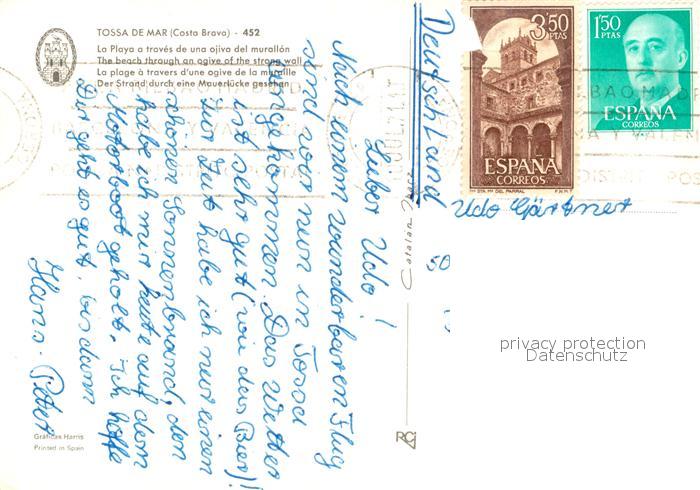 TOSSA DE MAR (Costa Brava) - 452
La Playa a través de una ojiva del murallón
The beach through an ogive of the strong wall
La plage à travers d'une ogive de la muraille
Der Strand durch eine Mauerlücke gesehen
Lieber Udo!
Nach einem wunderbaren Flug
sind wir nun in Tossa
angekommen. Das Wetter
ist sehr gut (wie das Bier)!
Zur Zeit habe ich nur einen
kleinen Sonnenbrand, den
habe ich mir heute auf dem
Motorboot geholt. Ich hoffe
Dir geht es gut, bis dann
Hans-Peter
Gráficas Harris
Printed in Spain
Deutschland
3'50
PTAS
ESPAÑA
CORREOS
Mº STA. Mª DEL PARRAL F.N.M.T
1'50
PTAS
ESPAÑA
CORREOS
Udo Gärtner
50
privacy protection
Datenschutz